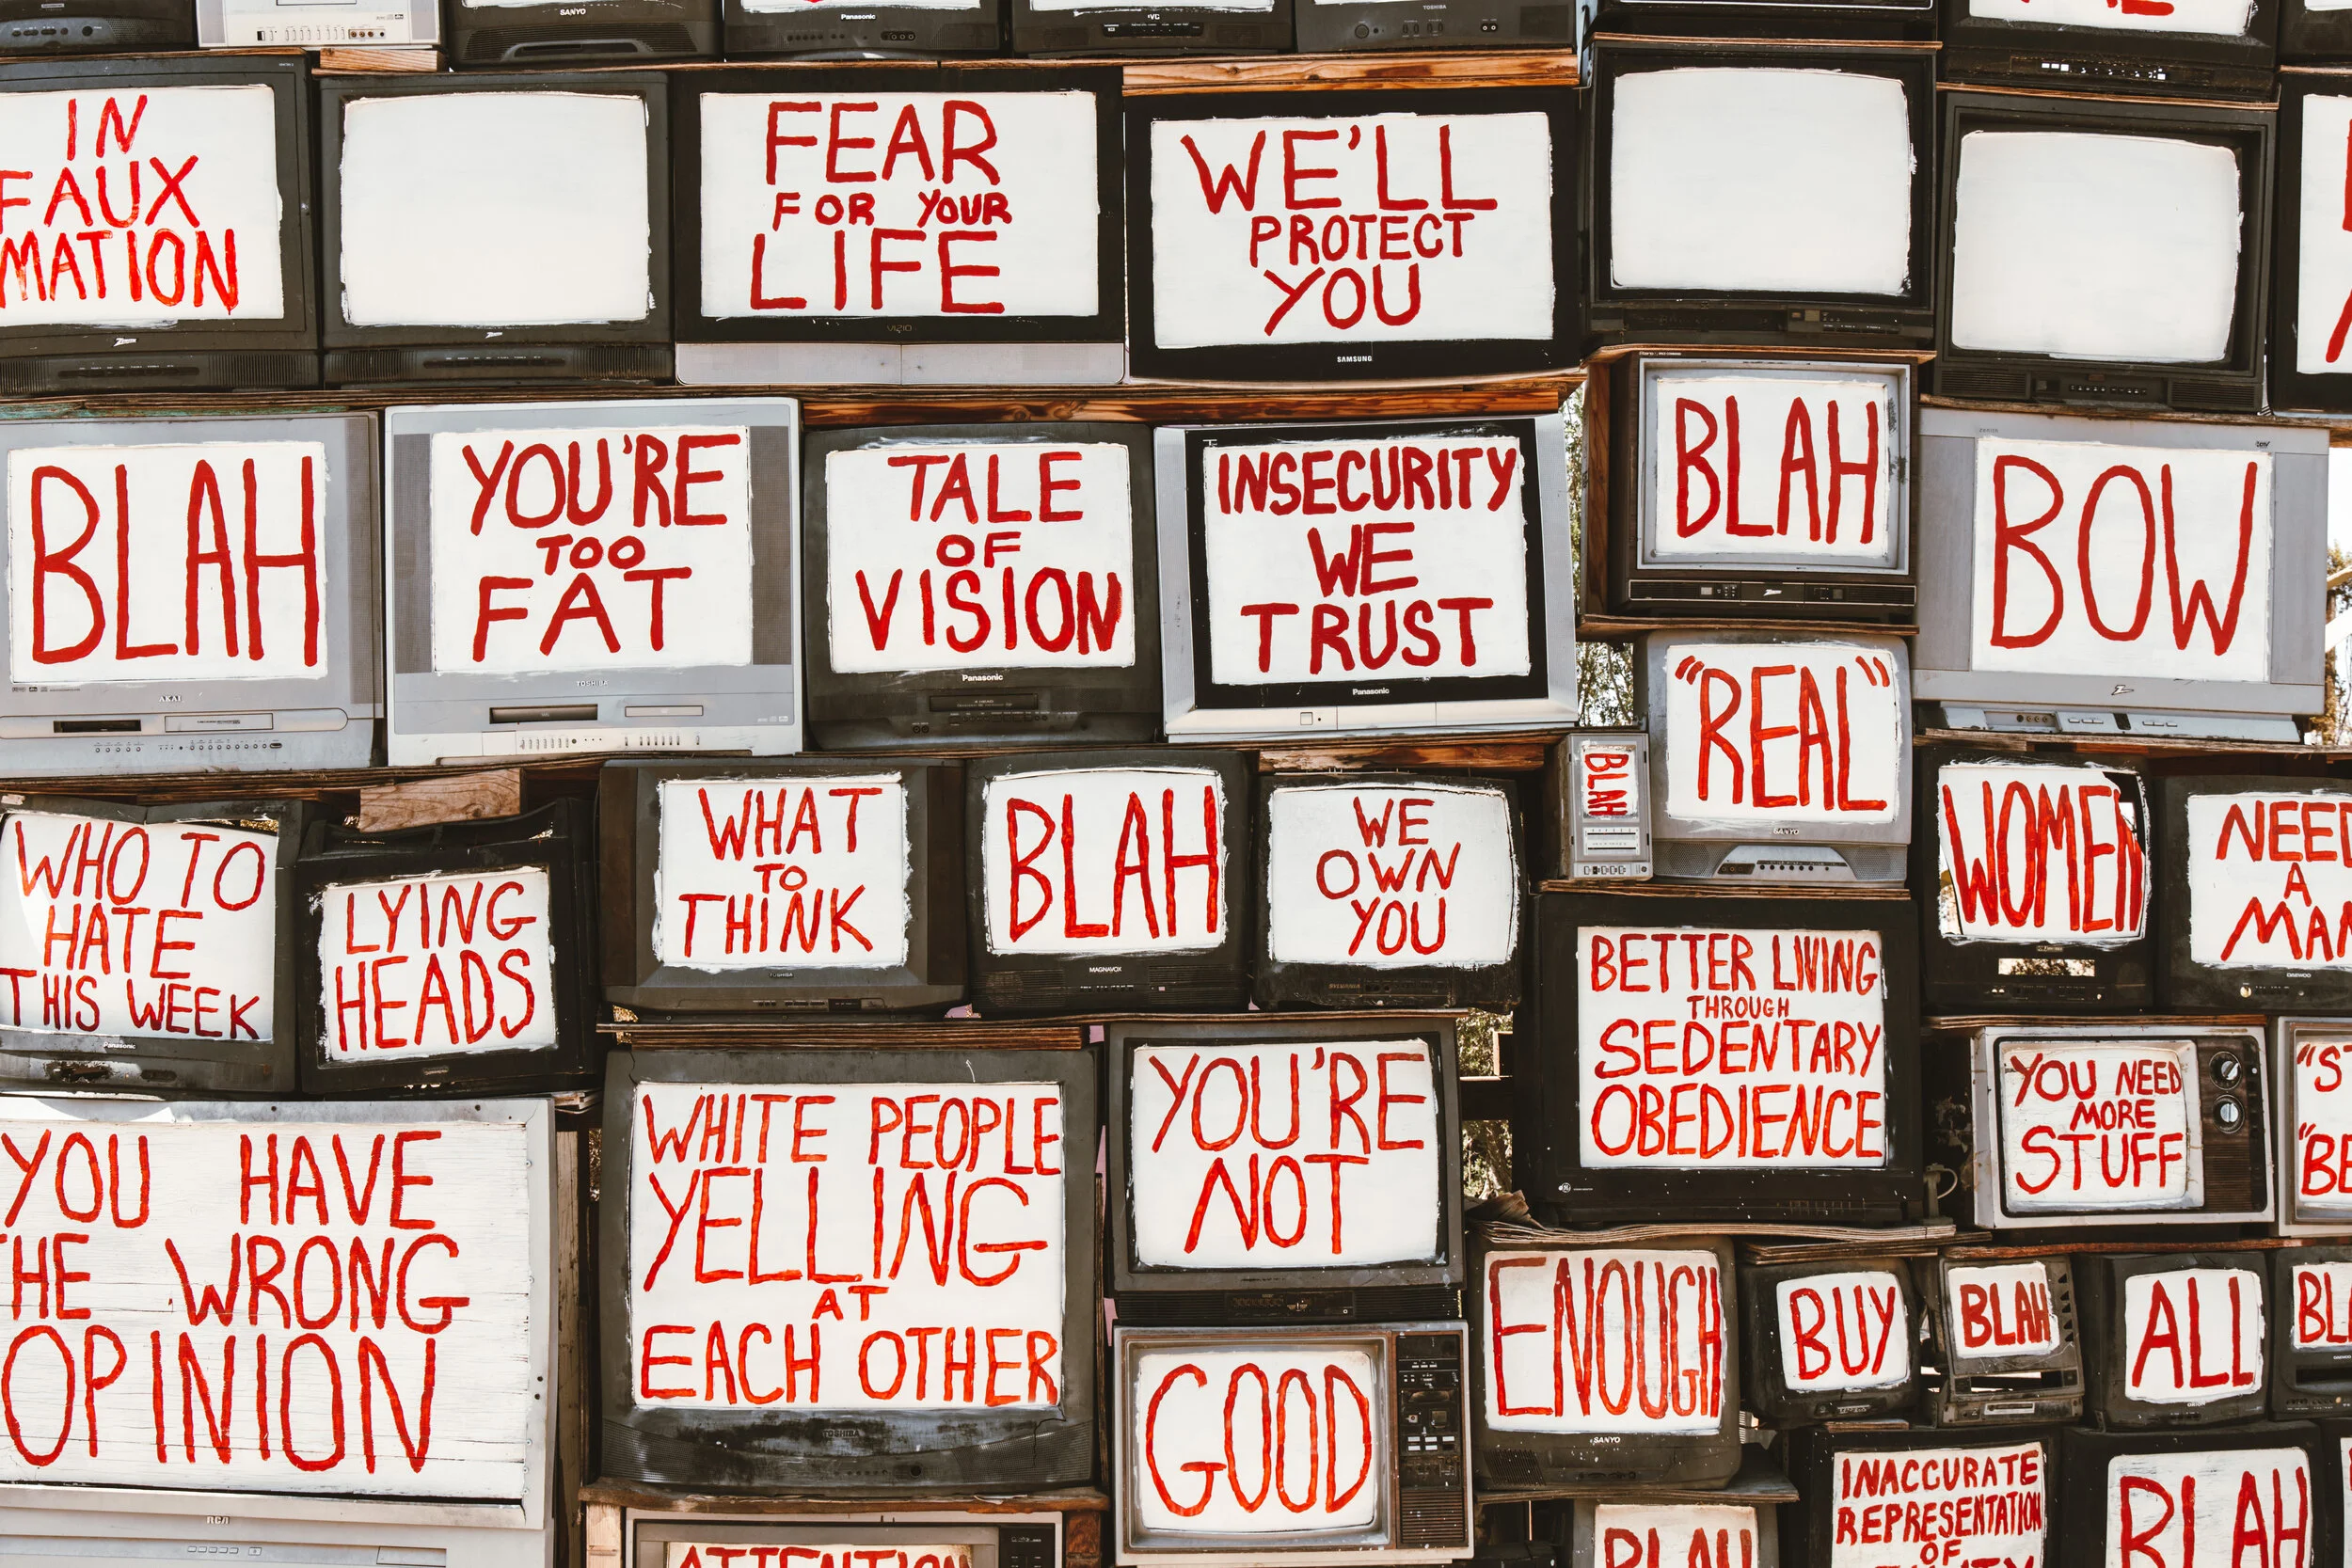 SANYO
Panasonic
JVC
TOSHIBA
IN
FAUX
MATION
Zenith
FEAR
FOR YOUR
LIFE
VIZIO
WE'LL
PROTECT
YOU
SAMSUNG
BLAH
AKAI
YOU'RE
TOO
FAT
TOSHIBA
TALE
OF
VISION
Panasonic
INSECURITY
WE
TRUST
Panasonic
BLAH
BOW
"REAL"
SANYO
BLAH
WHO TO
HATE
THIS WEEK
Panasonic
LYING
HEADS
WHAT
TO
THINK
TOSHIBA
BLAH
MAGNAVOX
WE
OWN
YOU
SYLVANIA
BETTER LIVING
THROUGH
SEDENTARY
OBEDIENCE
WOMEN
NEED
A
MAN
DAEWOO
YOU NEED
MORE
STUFF
"ST
"BE
YOU HAVE
THE WRONG
OPINION
RCA
WHITE PEOPLE
YELLING
AT
EACH OTHER
TOSHIBA
YOU'RE
NOT
GOOD
ENOUGH
SANYO
BUY
BLAH
ALL
ORION
BL
ATTENTION
BLAH
INACCURATE
REPRESENTATION
OF
BLAH